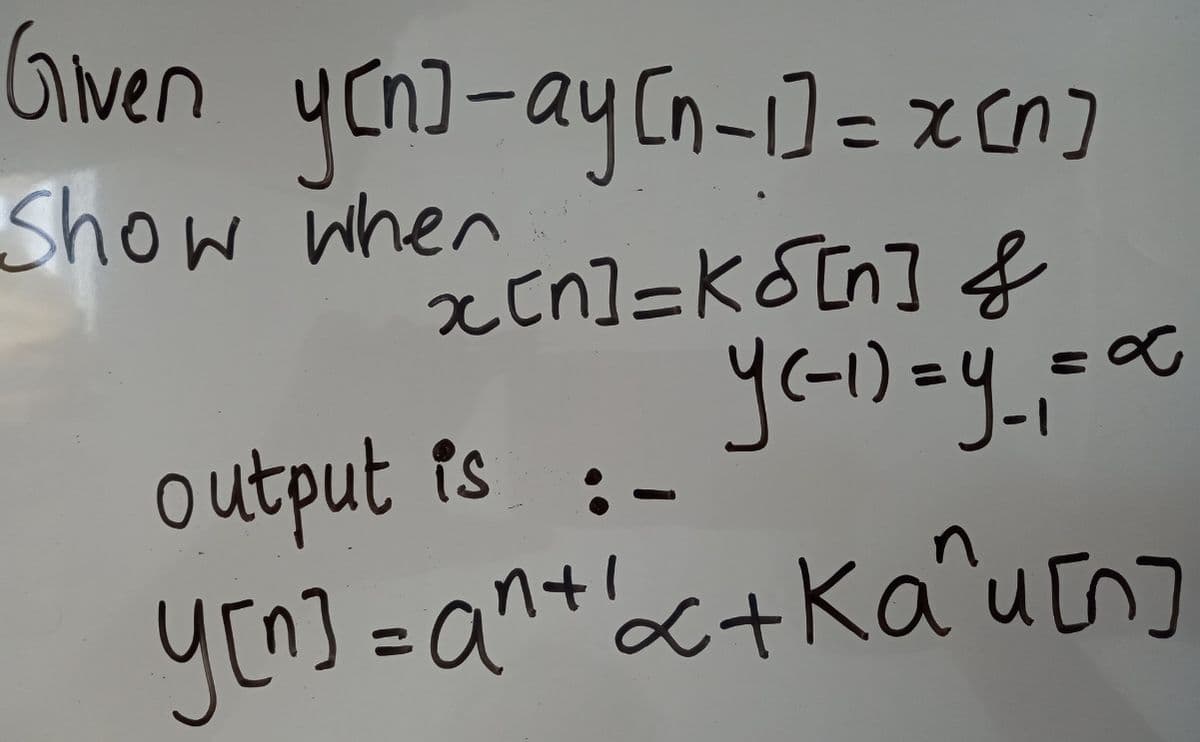 Given y[n]-ay[n-1]=x[n]
Show when
x[n]=Kδ[n] &
y(-1)=y₋₁=α
output is :-
y[n]=aⁿ⁺¹α+Kaⁿu[n]